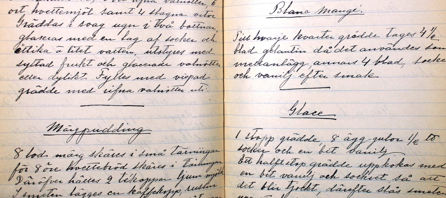 ort, hvetemjöl samt 2 skegna octer
Gräddas i svag ugn i två bottnar,
glaceras med en lag af socker och
ättika o litet vatten, utstyres med
syltad frukt och glacerade valnötter
eller dylikt. Fylles med vispad
grädde med rifna valnötter uti.
Märgpudding
8 lod. märg skäres i små tärningar
för 8 öre hvetebröd skäres i tärningar
Däröfver hälles 2 tekoppar ljum mjölk
I smeten lägges en kaffekopp russin
Blanc Mangé.
Till hvarje kvarter grädde tages 4 1/2
blad gelantin då det användes som
mellanlägg annars 4 blad, socker
och vanilj efter smak.
Glace
1 stopp grädde, 8 ägg gulor 1/2 ℔
socker och en bit vanilj
Ett halfstop grädde uppkokas med
en bit vanilj och sockret så att
det blir tjockt, därefter slås smeten